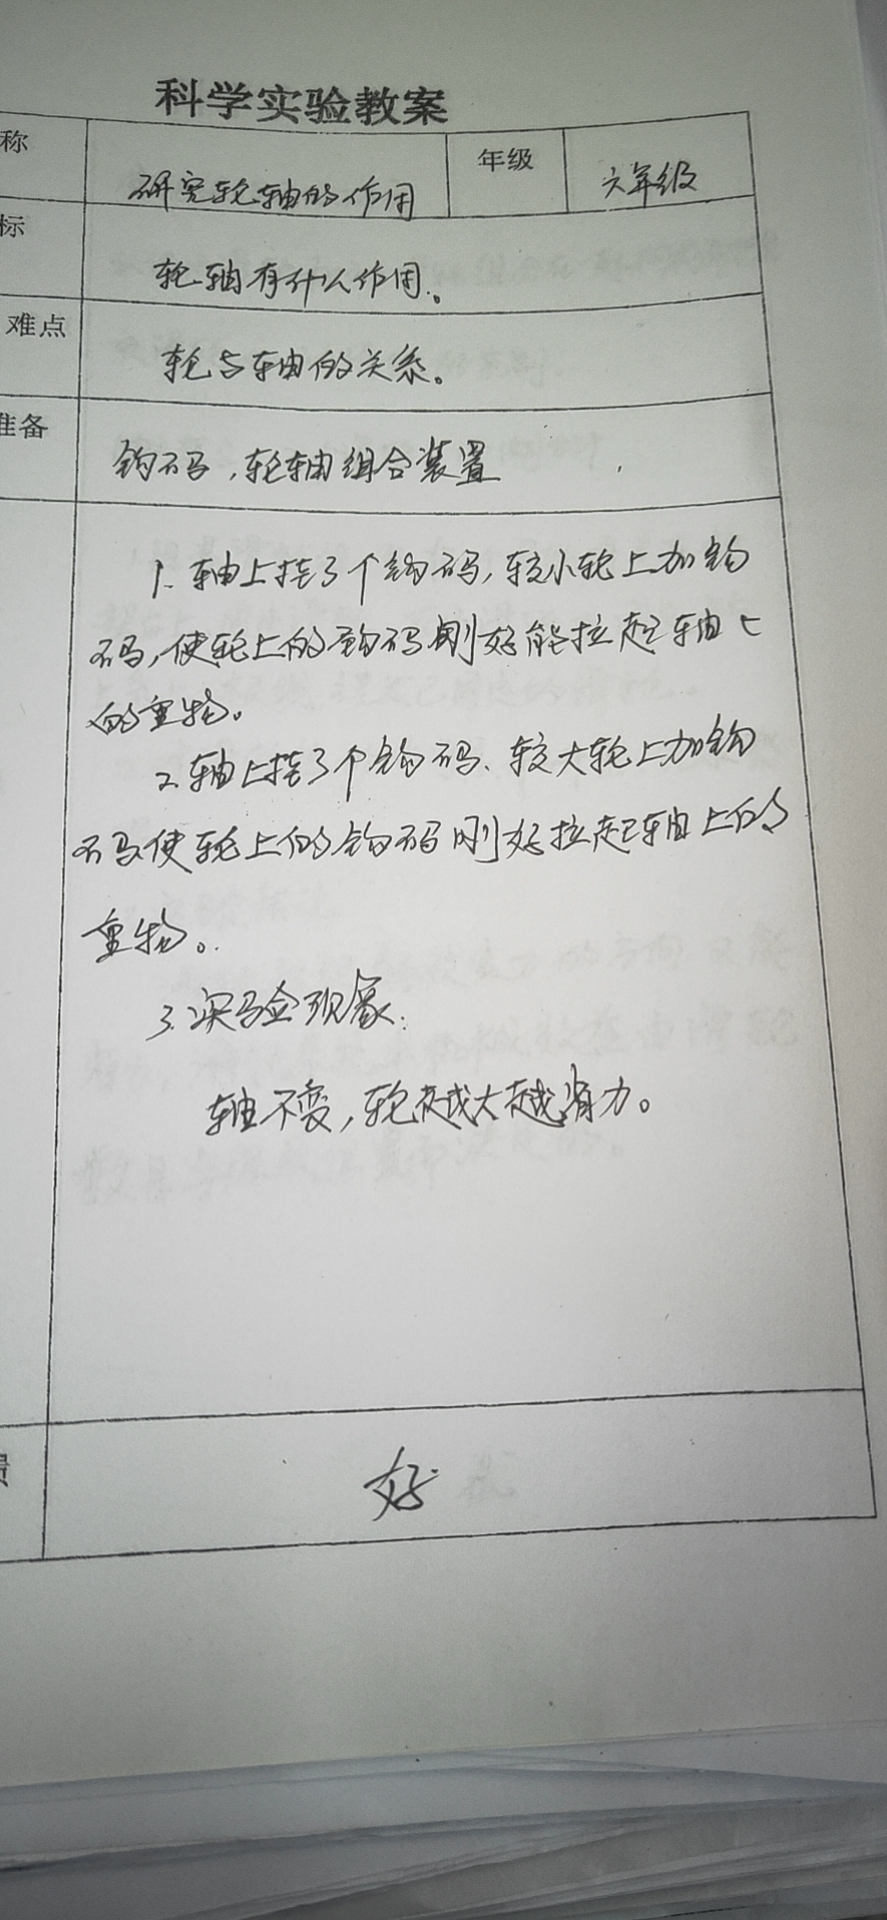 科学实验教案
称 研究轮轴的作用 年级 六年级
标 轮轴有什么作用。
难点 轮与轴的关系。
准备 钩码,轮轴组合装置
1. 轴上挂3个钩码,较小轮上加钩
码,使轮上的钩码刚好能拉起轴上
的重物。
2. 轴上挂3个钩码、较大轮上加钩
码使轮上的钩码刚好拉起轴上的
重物。
3. 实验现象:
轴不变,轮越大越省力。
好